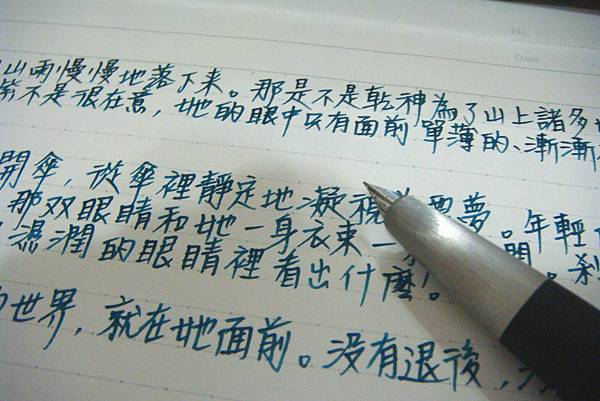 No.
Date
山雨慢慢地落下来。那是不是乾神為了山上諸多
不是很在意，她的眼中只有面前單薄的、漸漸
開傘，從傘裡靜定地凝視 夢。年輕
那双眼睛和她一身衣束一
濕潤的眼睛裡看出什麼！
世界，就在她面前。没有退後，